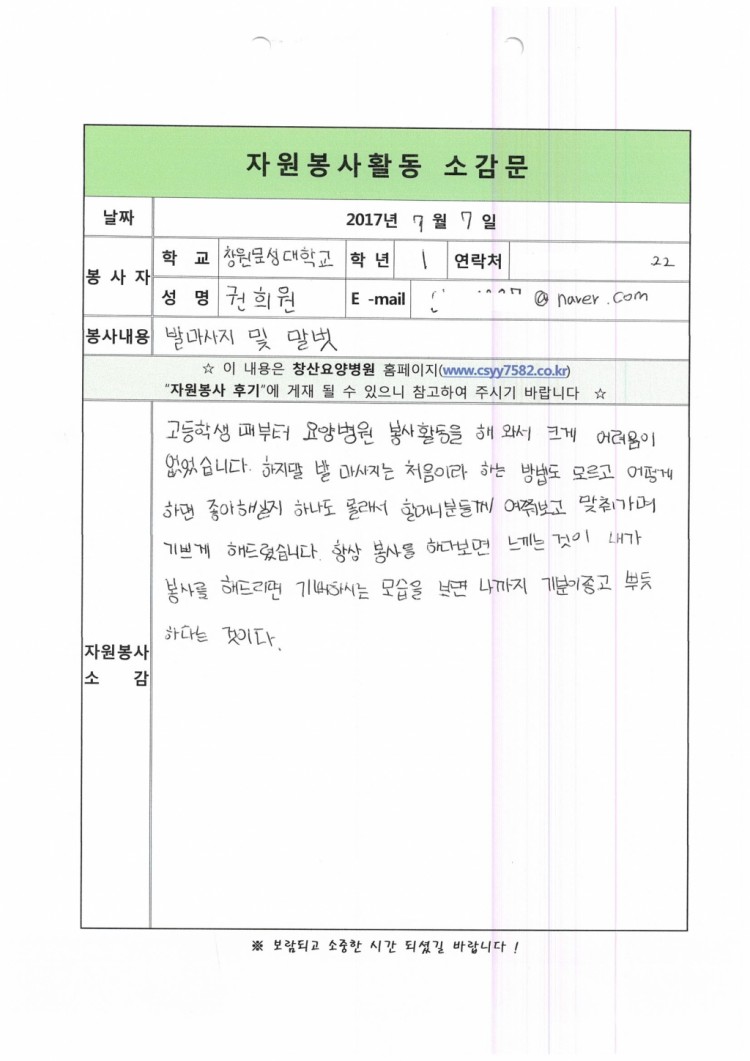 자원봉사활동 소감문
날짜 2017년 7월 7일
봉사자 학교 창원문성대학교 학년 1 연락처 22
성명 권희원 E-mail @naver.com
봉사내용 발마사지 및 말벗
☆ 이 내용은 창산요양병원 홈페이지(www.csyy7582.co.kr)
"자원봉사 후기"에 게재 될 수 있으니 참고하여 주시기 바랍니다 ☆
고등학생 때부터 요양병원 봉사활동을 해 와서 크게 어려움이
없었습니다. 하지말 발 마사지는 처음이라 하는 방법도 모르고 어떻게
하면 좋아하실지 하나도 몰라서 할머니분들께 여쭤보고 맞춰가며
기쁘게 해드렸습니다. 항상 봉사를 하다보면 느끼는 것이 내가
봉사를 해드리면 기뻐하시는 모습을 보면 나까지 기분이좋고 뿌듯
하다는 것이다.
자원봉사
소감
※ 보람되고 소중한 시간 되셨길 바랍니다!